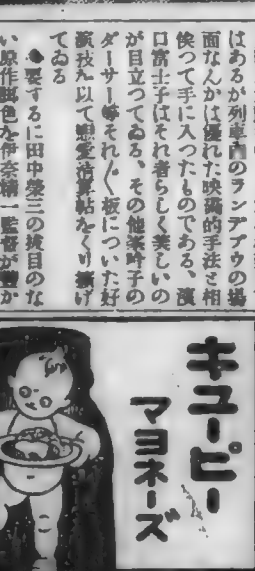 はあるが列車内のランデブウの場
面なんかは優れた映画的手法と相
俟つて手に入つたものである、濱
口富士子はそれ者らしく美しいの
が目立つてゐる、その他 子の
ダーサー等それ〴〵板についた好
演技を以て戀愛清算帖をくり擴げ
てゐる
◆要するに田中榮三の抜目のな
い原作脚色を伊奈精一監督が か
キューピー
マヨネーズ